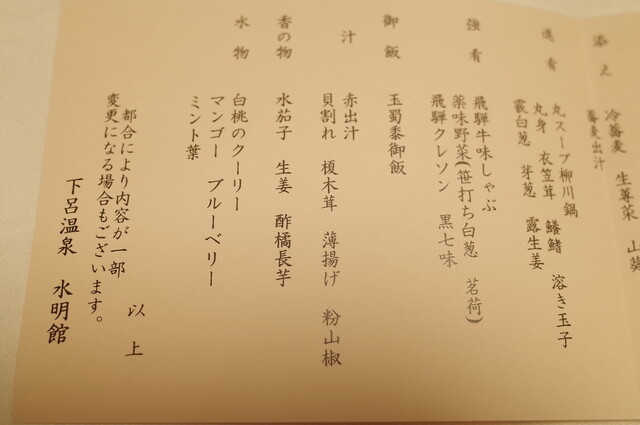 添え
冷蕎麦 生蓴菜 山葵
蕎麦出汁
進肴
丸スープ柳川鍋
丸身 衣笠茸 鱶鰭 溶き玉子
霰白葱 芽葱 露生姜
強肴
飛騨牛味しゃぶ
薬味野菜(笹打ち白葱 茗荷)
飛騨クレソン 黒七味
御飯
玉蜀黍御飯
汁
赤出汁
貝割れ 榎木茸 薄揚げ 粉山椒
香の物
水茄子 生姜 酢橘長芋
水物
白桃のクーリー
マンゴー ブルーベリー
ミント葉
以上
都合により内容が一部
変更になる場合もございます。
下呂温泉 水明館